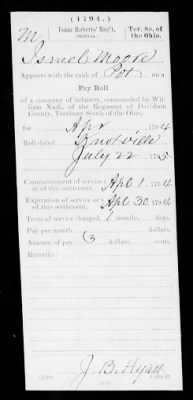 (1794.)
M
Isaac Roberts' Reg't,
(Militia.)
Ter. So. of
the Ohio.
Ismel Moore
Appears with the rank of Pvt. on a
Pay Roll
of a company of infantry, commanded by William
Nash, of the Regiment of Davidson
County, Territory South of the Ohio,
for Apr 1794
Roll dated Knoxville
July 22 1795
Commencement of service or of this settlement, Apl 1, 1794
Expiration of service or of this settlement, Apl 30, 1794
Term of service charged, months, days.
Pay per month, dollars
Amount of pay, 3 dollars, cents.
Remarks:
J. B. Hyatt
Copyist.